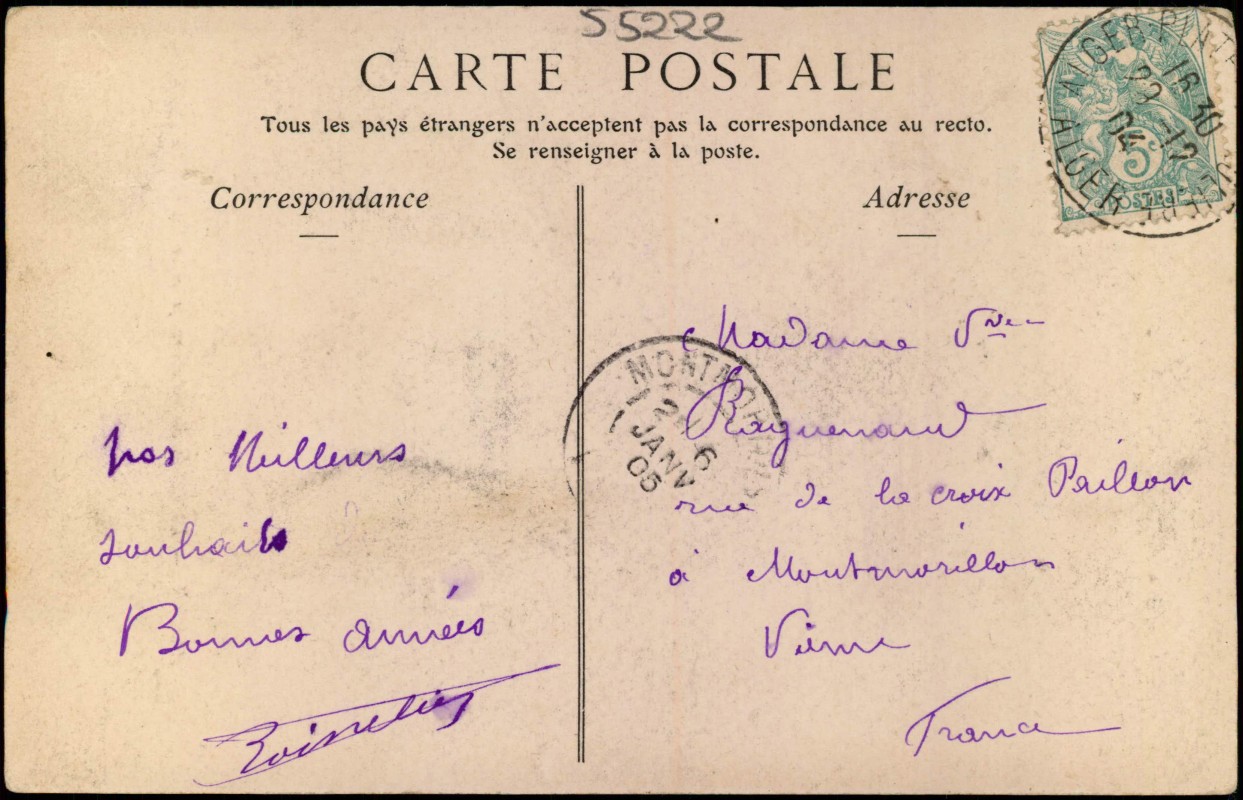 55222
CARTE POSTALE
Tous les pays étrangers n'acceptent pas la correspondance au recto.
Se renseigner à la poste.
Correspondance
Adresse
ALGER
16 30
04
ALGER
5c
POSTES
nos Meilleurs
souhaits
Bonnes années
Madame Vve
Raguenaud
rue de la croix Peillon
à Montmorillon
Vienne
France
6
JANV
05